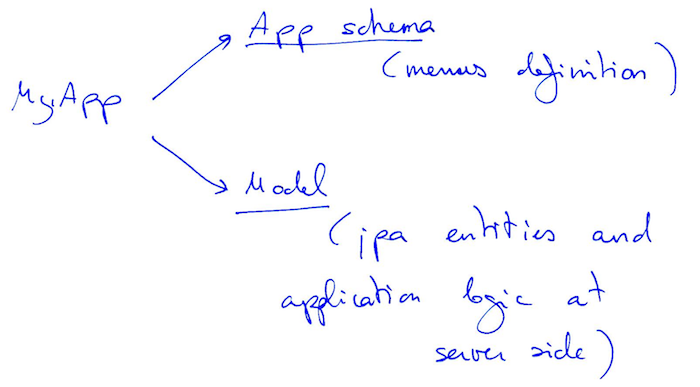 App schema
(menus definition)
MyApp
Model
(jpa entities and
application logic at
server side)